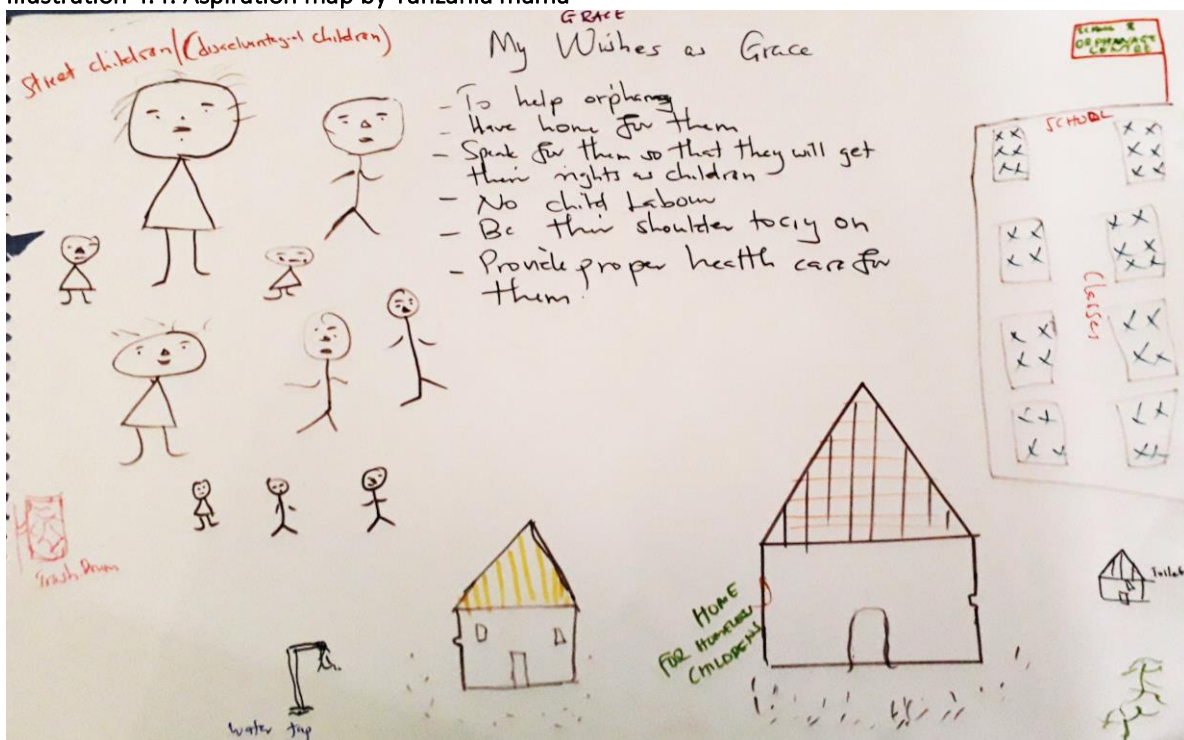 Illustration 4.4: Aspiration map by Tanzania mama
GRACE
My Wishes as Grace
- To help orphans
- Have home for them
- Speak for them so that they will get
their rights as children
- No child Labour
- Be their shoulder to cry on
- Provide proper health care for
them.
Street children/(
children)
SCHOOL &
ORPHANAGE
CENTRE
SCHOOL
Classes
Trash Drum
Water tap
HOME
FOR HOMELESS
CHILDRENS
Toilet